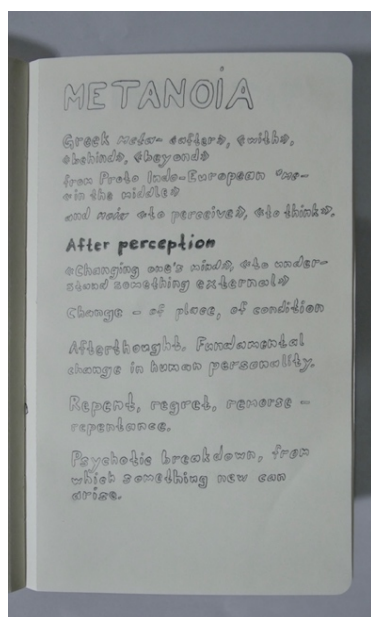 METANOIA
Greek meta- «after», «with»,
«behind», «beyond»
from Proto Indo-European *me-
«in the middle»
and noia «to perceive», «to think».
After perception
«Changing one's mind», «to under-
stand something external»
Change - of place, of condition
Afterthought. Fundamental
change in human personality.
Repent, regret, remorse -
repentance.
Psychotic breakdown, from
which something new can
arise.